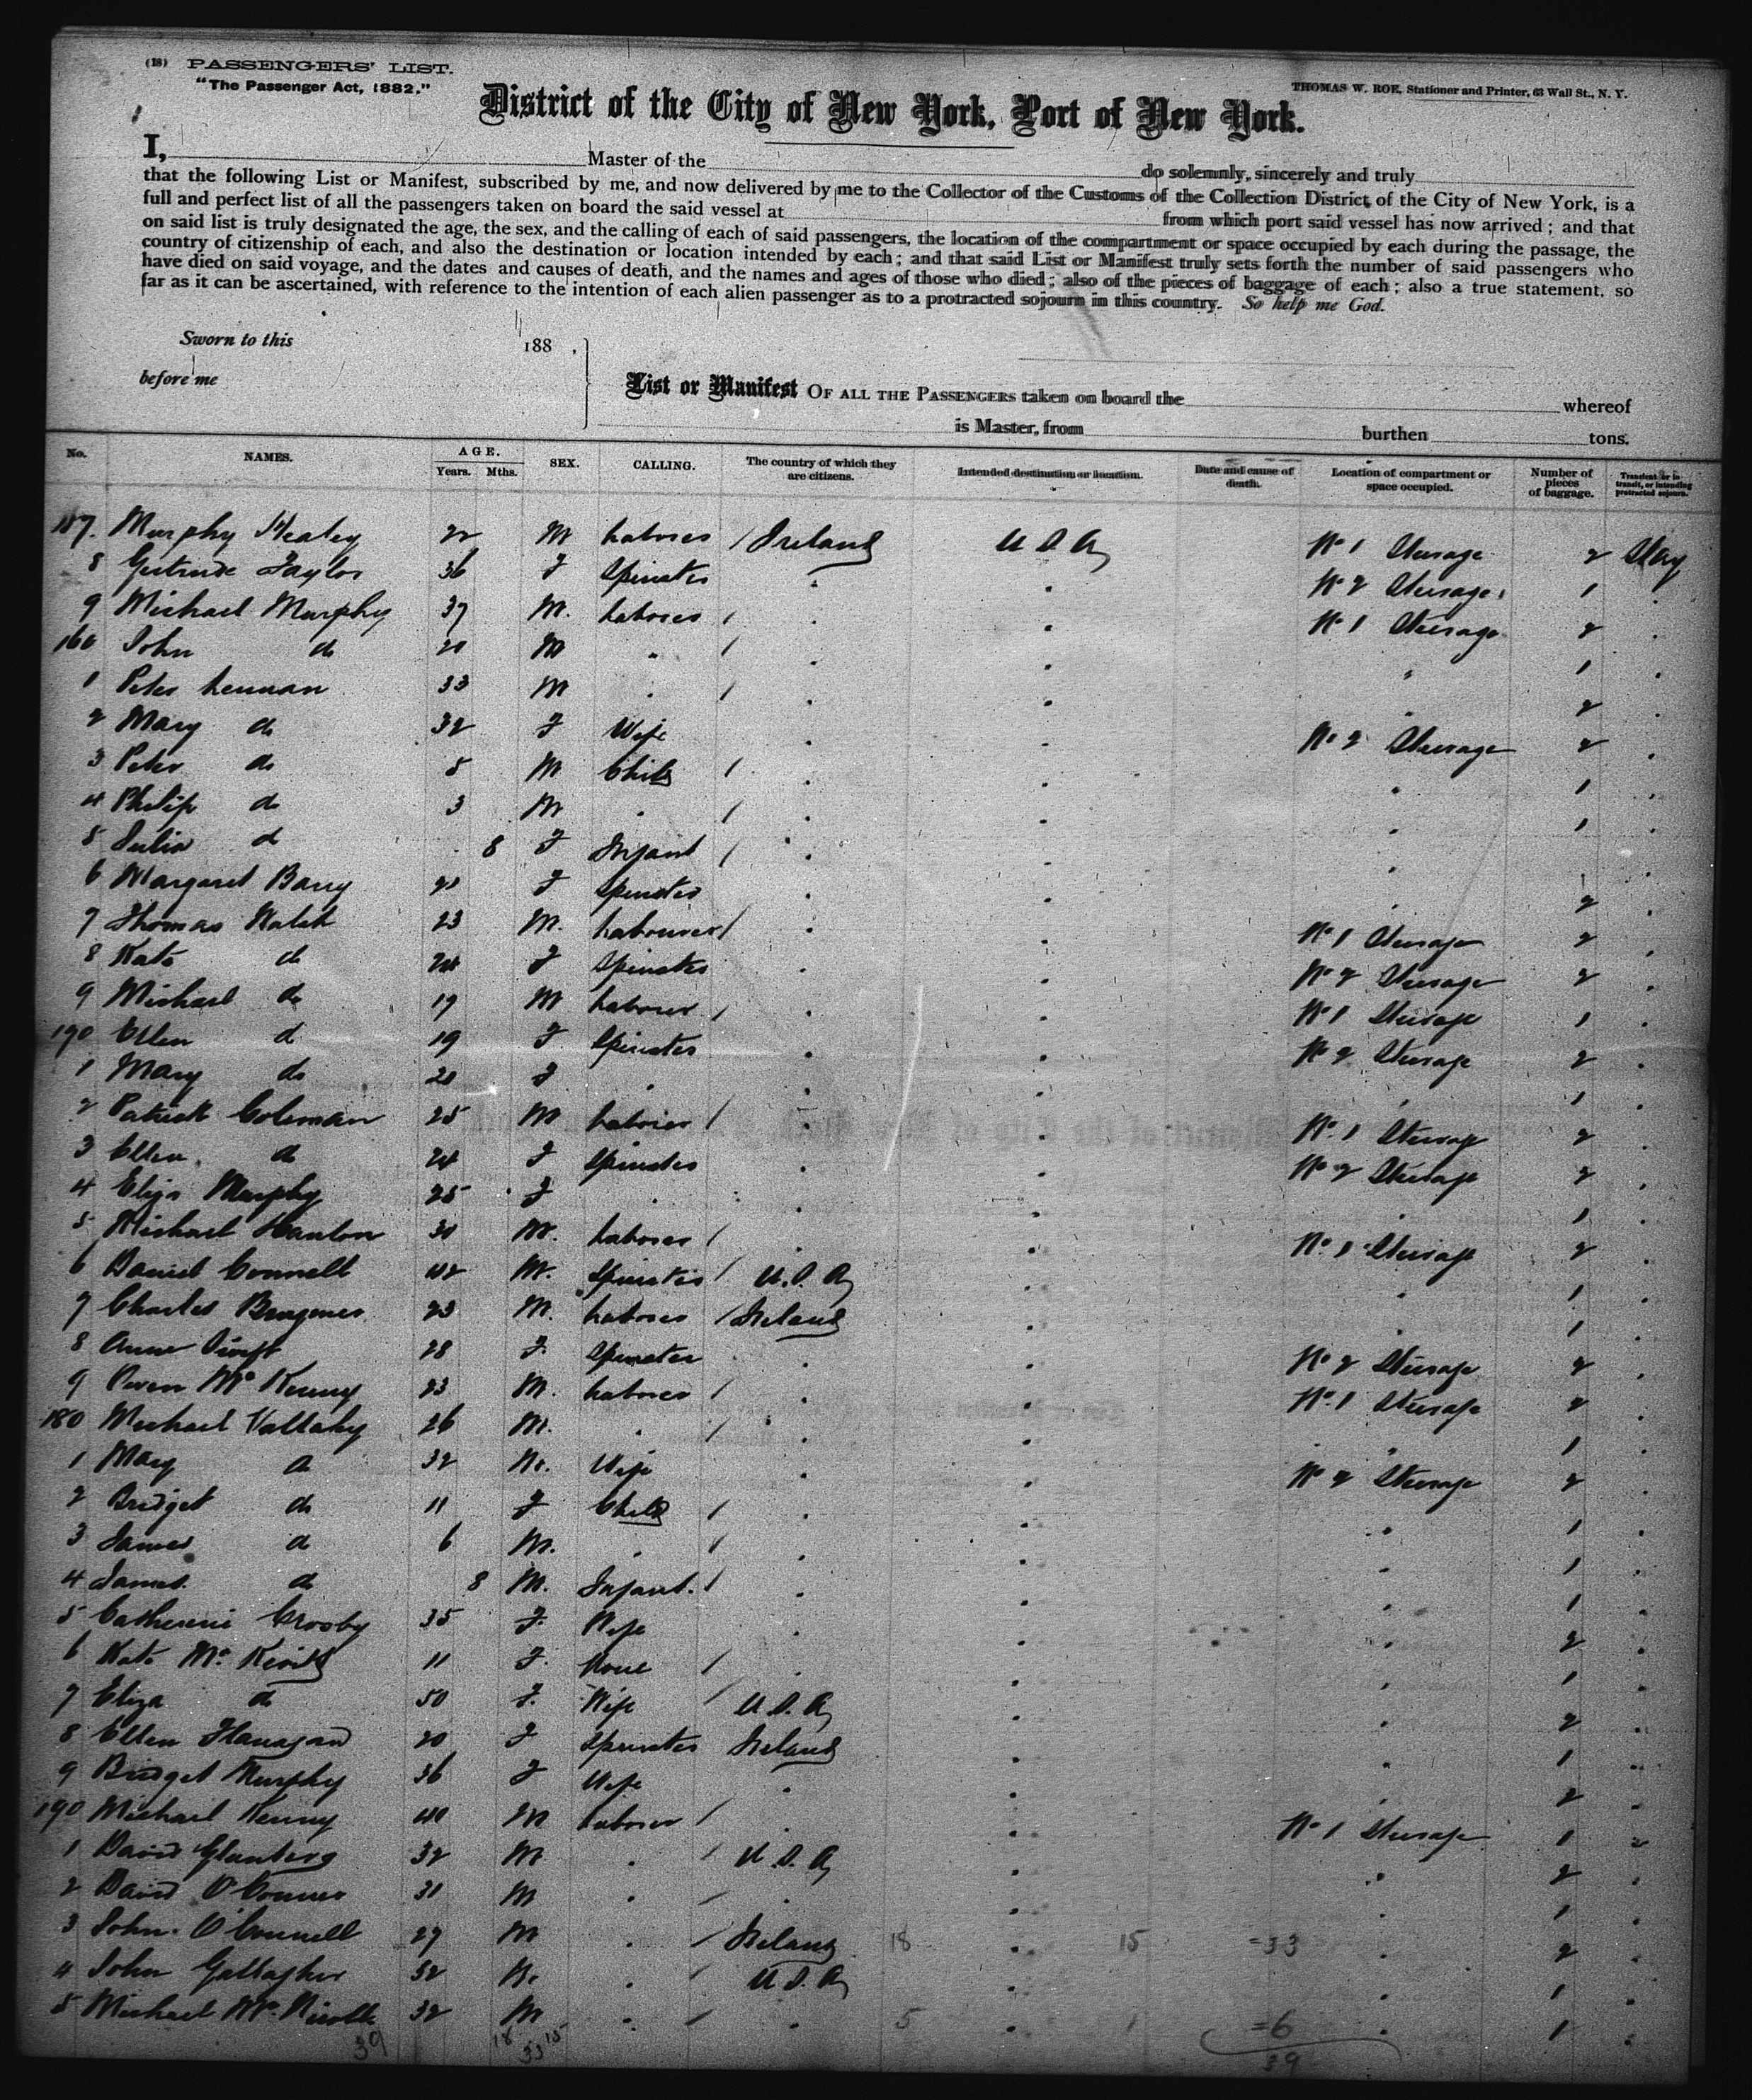 (18) PASSENGERS' LIST.
"The Passenger Act, 1882."
THOMAS W. ROE, Stationer and Printer, 63 Wall St., N. Y.
District of the City of New York, Port of New York.
I, Master of the do solemnly, sincerely and truly
that the following List or Manifest, subscribed by me, and now delivered by me to the Collector of the Customs of the Collection District of the City of New York, is a
full and perfect list of all the passengers taken on board the said vessel at from which port said vessel has now arrived; and that
on said list is truly designated the age, the sex, and the calling of each of said passengers, the location of the compartment or space occupied by each during the passage, the
country of citizenship of each, and also the destination or location intended by each; and that said List or Manifest truly sets forth the number of said passengers who
have died on said voyage, and the dates and causes of death, and the names and ages of those who died; also of the pieces of baggage of each; also a true statement, so
far as it can be ascertained, with reference to the intention of each alien passenger as to a protracted sojourn in this country. So help me God.
Sworn to this 188 ,
before me
List or Manifest OF ALL THE PASSENGERS taken on board the whereof
is Master, from burthen tons.
No. NAMES. AGE. Years. Mths. SEX. CALLING. The country of which they are citizens. Intended destination or location. Date and cause of death. Location of compartment or space occupied. Number of pieces of baggage. Transient or in transit, or intending protracted sojourn.
Murphy Healey 22 M Laborer / Ireland U S A No 1 Steerage 2 Stay
8 Gertrude Taylor 36 F Spinster " " No 2 Steerage 1 "
9 Michael Murphy 37 M. Laborer / " " No 1 Steerage 2 "
160 John do M " / " " " 1 "
1 Peter Lennan 33 M " / " " " 2 "
2 Mary do 32 F Wife " " No 2 Steerage 2 "
3 Peter do 5 M Child / " " " 1 "
4 Philip do 3 M " / " " " 1 "
5 Julia do 8 F Infant / " " " "
6 Margaret Barry F Spinster " " " 2 "
7 Thomas Walsh 23 M. Labourer / " " No 1 Steerage 2 "
8 Kate do 24 F Spinster " " No 2 Steerage 2 "
9 Michael do 19 M Laborer / " " No 1 Steerage 1 "
170 Ellen do 19 F Spinster " " No 2 Steerage 2 "
1 Mary do F " " " " 1 "
2 Patrick Coleman 25 M Laborer / " " No. 1 Steerage 2 "
3 Ellen do 24 F Spinster " " No 2 Steerage 2 "
4 Eliza Murphy 25 F " " " " 1 "
5 Michael Hanlon 30 M. Laborer / " " No. 1 Steerage 2 "
6 Daniel Connell 42 M. Spinster / U. S. A " " 1 "
7 Charles 23 M. Laborer / Ireland " " 1 "
8 Anne Swift 28 F. Spinster " " No 2 Steerage 2 "
9 Owen McKenny 23 M. Laborer / " " No. 1 Steerage 2 "
180 Michael 26 M. " / " " " 1 "
1 Mary do 32 M. Wife " " No 2 Steerage 2 "
2 Bridget do 11 F Child / " " " 1 "
3 James do 6 M. " / " " " 1 "
4 James do 8 M. Infant. / " " " 1 "
5 Catherine Crosby 35 F. Wife " " " 2 "
6 Kate 11 F. None / " " " 1 "
7 Eliza do 50 F. Wife / U. S. A " " 2 "
8 Ellen Flanagan 20 F Spinster Ireland " " 1 "
9 Bridget Murphy 36 F Wife " " " 2 "
190 Michael Kenny 40 M Laborer / " " No 1 Steerage 1 "
1 David 32 M " / U. S. A " " 2 "
2 David O'Connor 31 M " / " " " 1 "
3 John O'Connell 27 M " / Ireland 18 " 15 =33 " 2 "
4 John Gallagher 32 M. " / U S. A " " 1 "
5 Michael 32 M " / " 5 " 1 =6 " 1 "
39 18 15 33 39